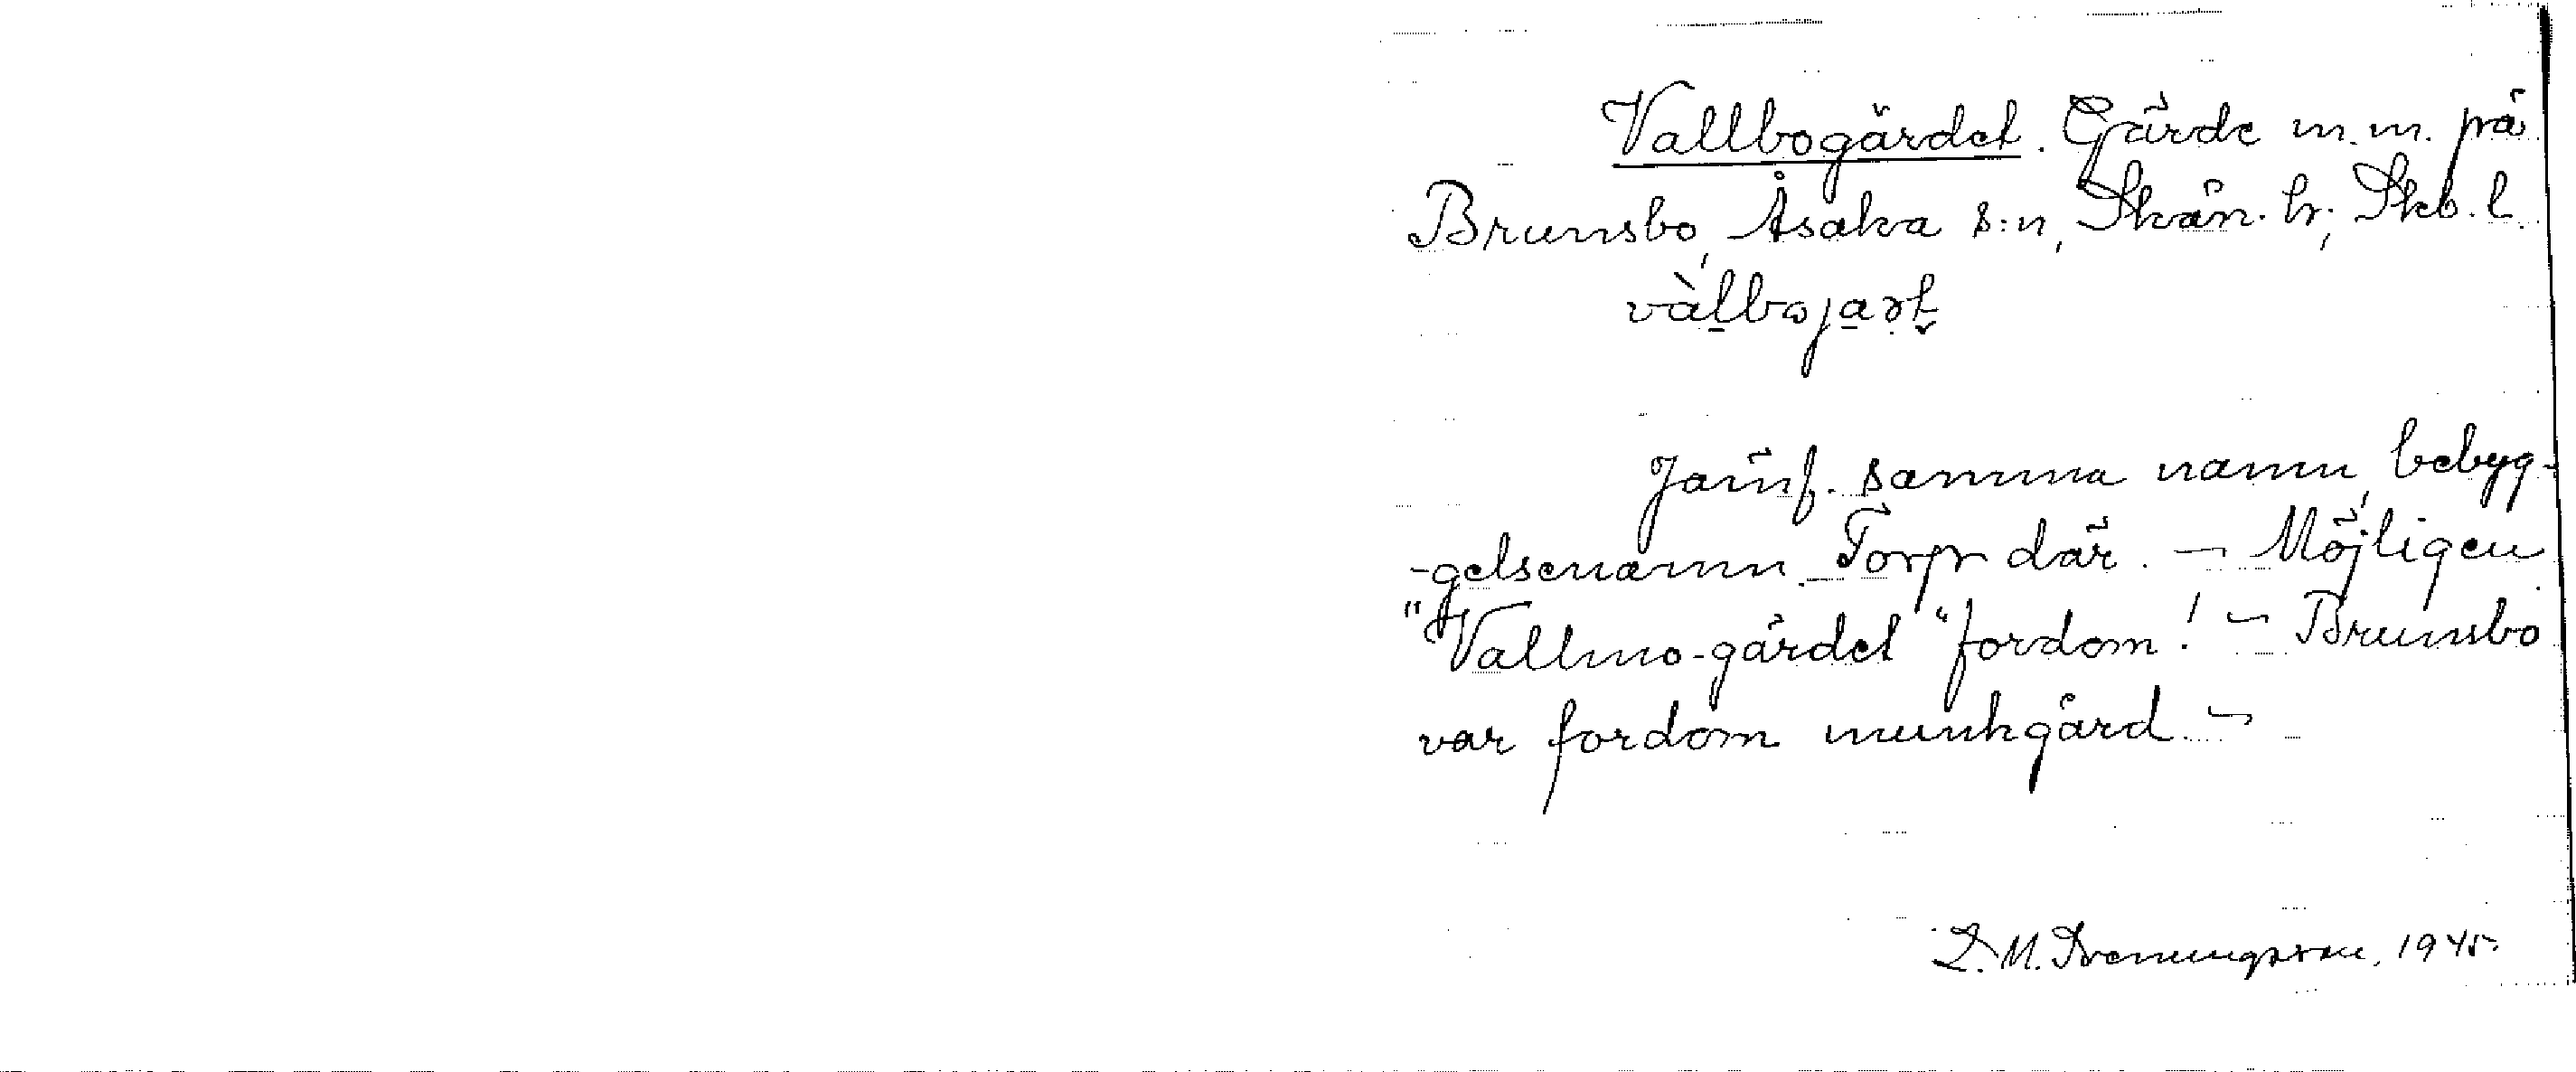 Vallbogärdet. Gärde m.m. på
Brunsbo, Åsaka s:n, Skån. hr, Skb. l
vàlbojaṛt
Jämf. samma namn, bebyg-
-gelsenamn Torp där. — Möjligen
"Vallmo-gärdet" fordom! — Brunsbo
var fordom munkgård —
1945.